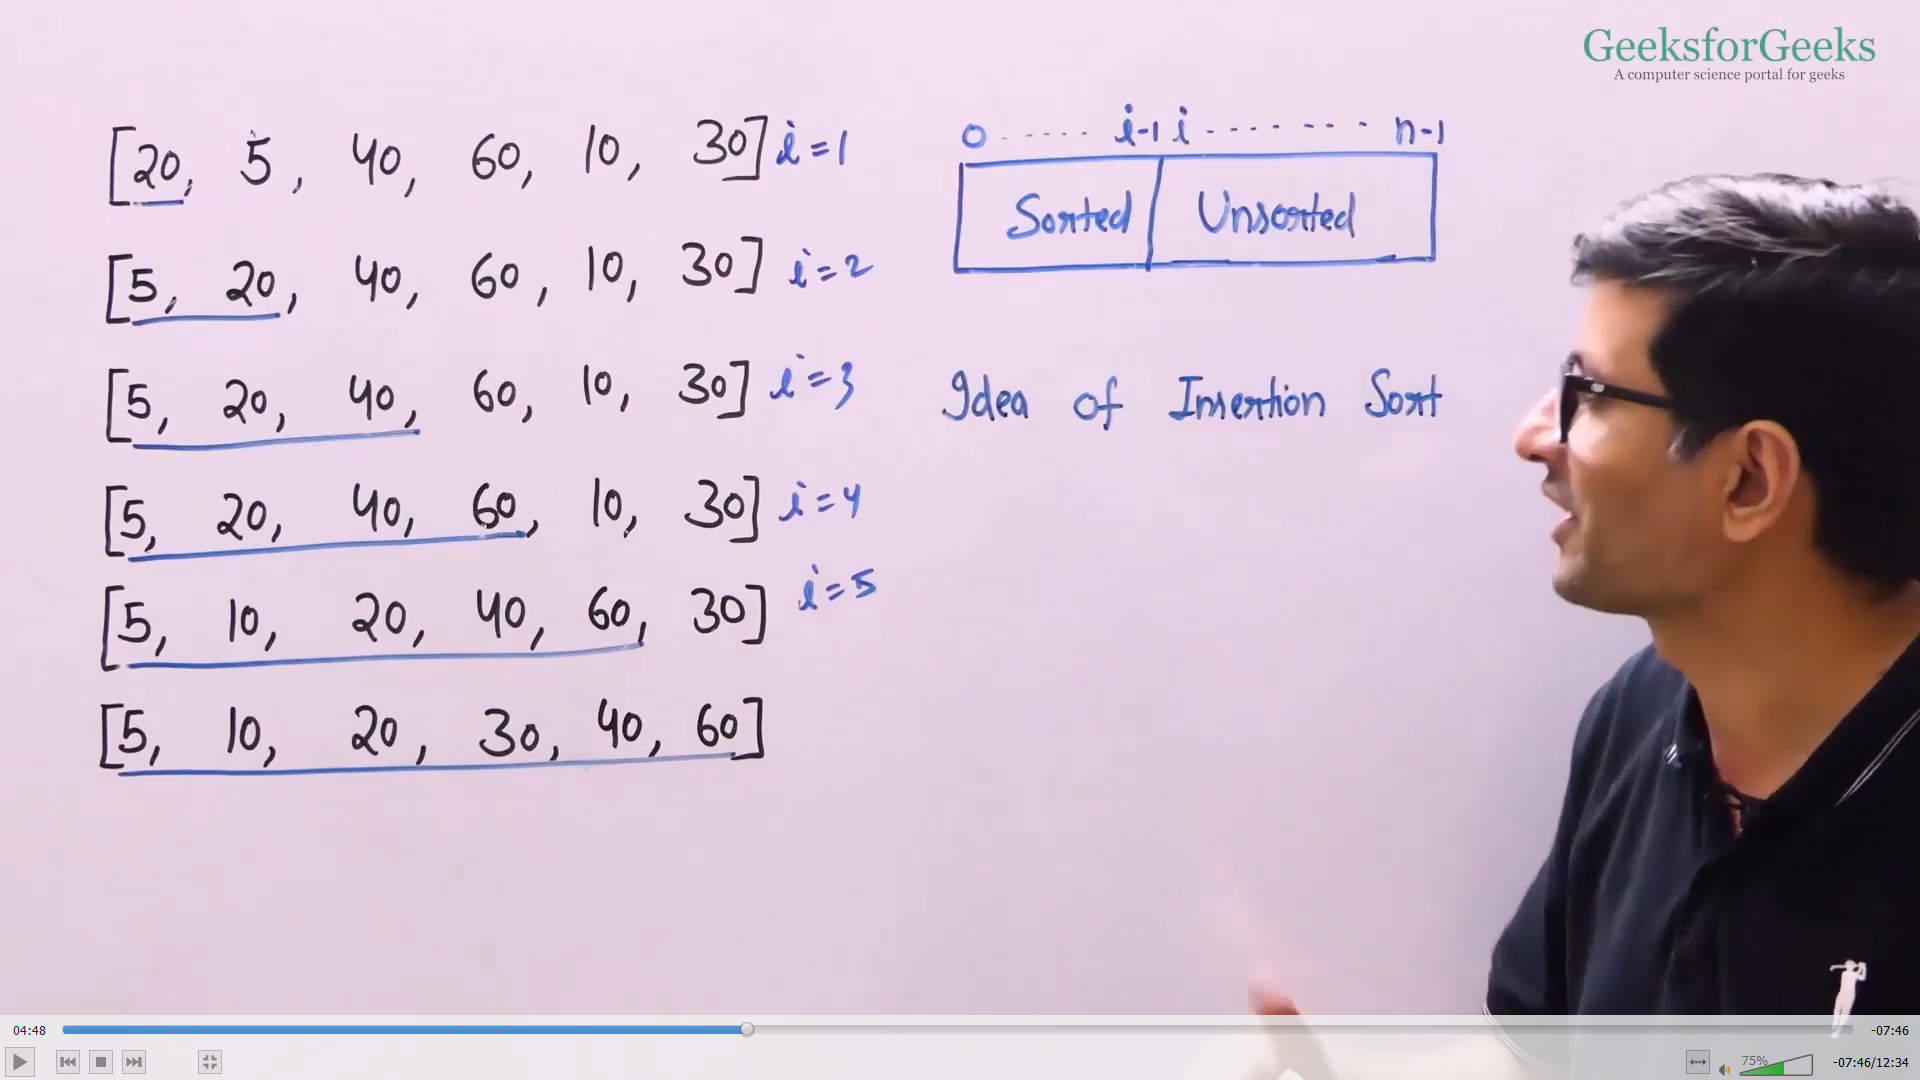 GeeksforGeeks
A computer science portal for geeks
[20, 5, 40, 60, 10, 30] i=1
[5, 20, 40, 60, 10, 30] i=2
[5, 20, 40, 60, 10, 30] i=3
[5, 20, 40, 60, 10, 30] i=4
[5, 10, 20, 40, 60, 30] i=5
[5, 10, 20, 30, 40, 60]
0 ..... i-1 i ........ n-1
Sorted Unsorted
Idea of Insertion Sort
04:48
-07:46
75%
-07:46/12:34